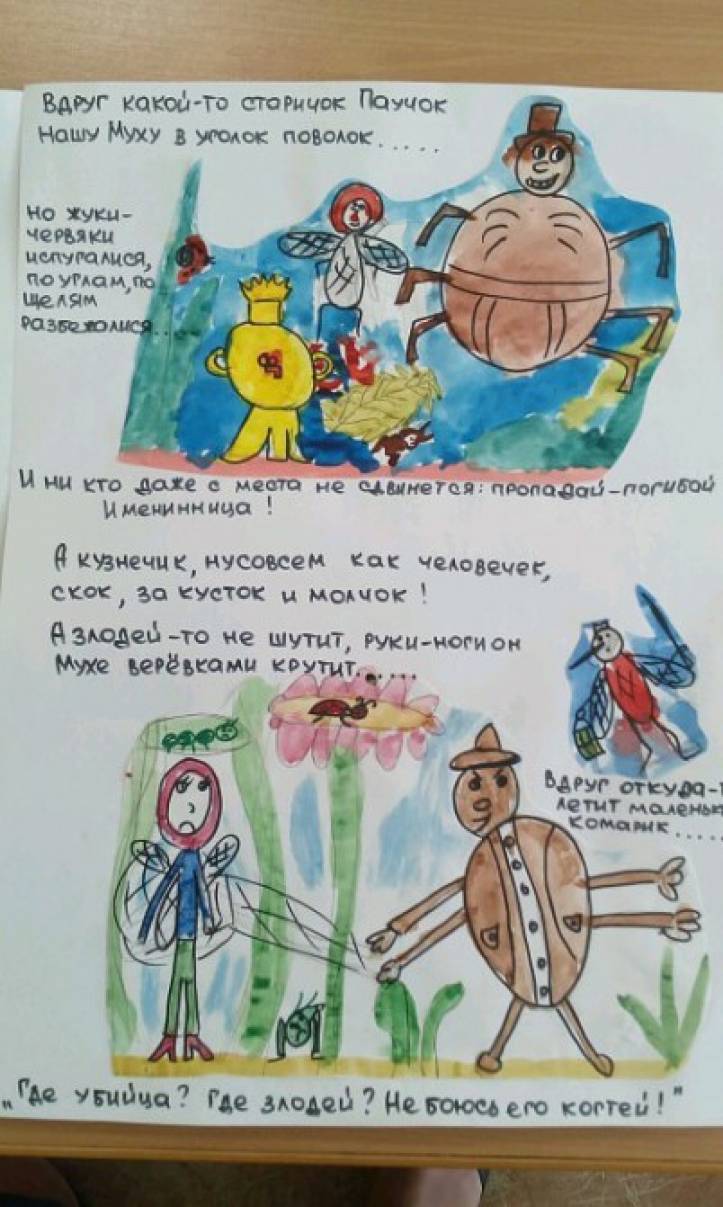 Вдруг какой-то старичок Паучок
нашу Муху в уголок поволок.....
но жуки-
червяки
испугалися,
по углам, по
щелям
разбежолися...
И ни кто даже с места не сдвинется: пропадай-погибай
Именинница!
А кузнечик, нусовсем как человечек,
скок, за кусток и молчок!
А злодей-то не шутит, руки-ноги он
Мухе верёвками крутит......
Вдруг откуда-т
летит маленьк
комарик.....
„Где убийца? Где злодей? Не боюсь его когтей!"